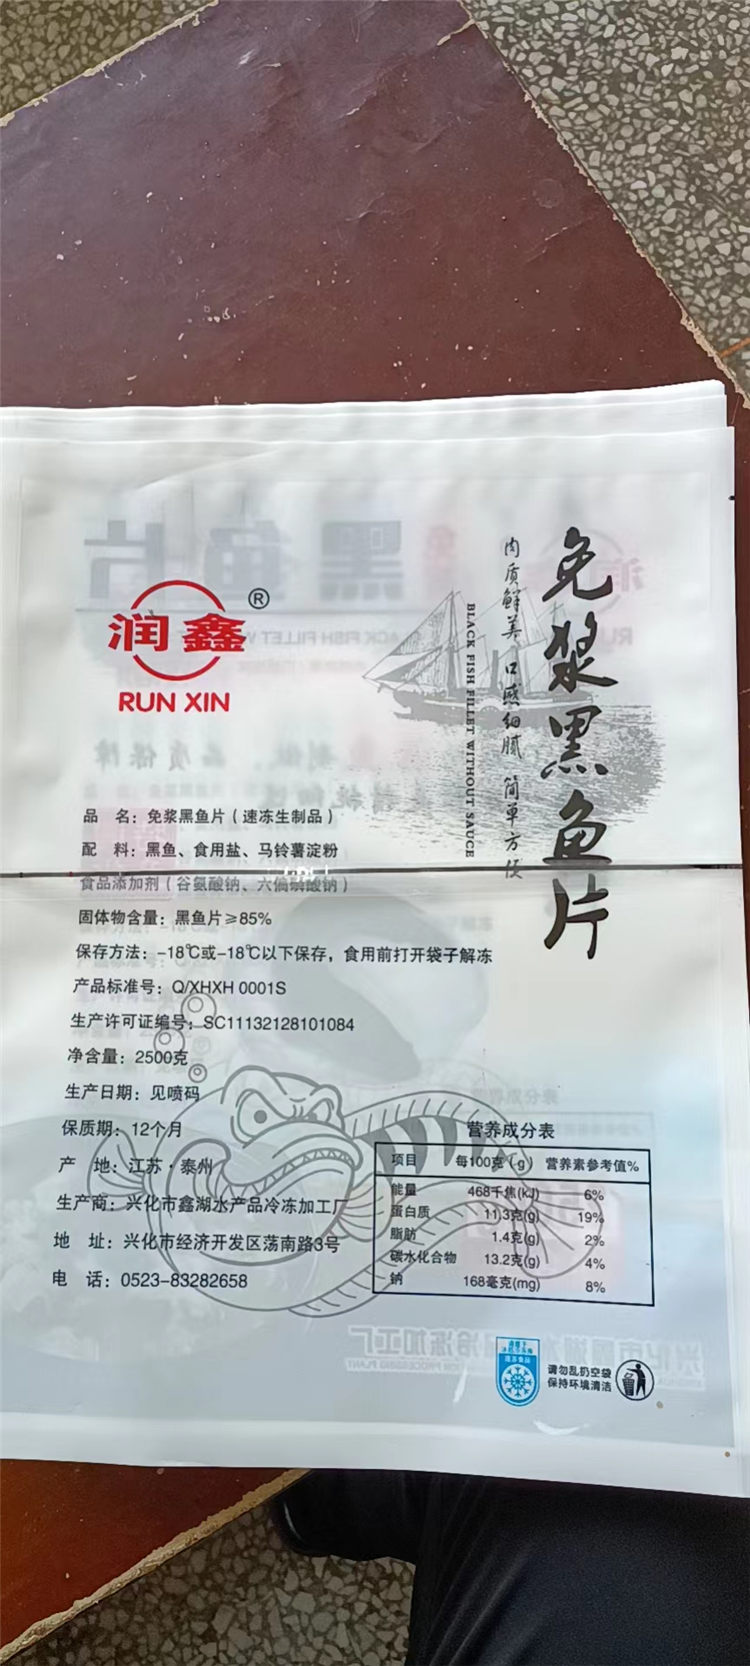 润鑫®
RUN XIN
免浆黑鱼片
肉质鲜美 口感细腻 简单方便
BLACK FISH FILLET WITHOUT SAUCE
品 名：免浆黑鱼片（速冻生制品）
配 料：黑鱼、食用盐、马铃薯淀粉
食品添加剂（谷氨酸钠、六偏磷酸钠）
固体物含量：黑鱼片≥85%
保存方法：-18℃或-18℃以下保存，食用前打开袋子解冻
产品标准号：Q/XHXH 0001S
生产许可证编号：SC11132128101084
净含量：2500克
生产日期：见喷码
保质期：12个月
产 地：江苏·泰州
生产商：兴化市鑫湖水产品冷冻加工厂
地 址：兴化市经济开发区荡南路3号
电 话：0523-83282658
营养成分表
项目 每100克（g） 营养素参考值%
能量 468千焦(kJ) 6%
蛋白质 11.3克(g) 19%
脂肪 1.4克(g) 2%
碳水化合物 13.2克(g) 4%
钠 168毫克(mg) 8%
速冻食品
请勿乱扔空袋
保持环境清洁